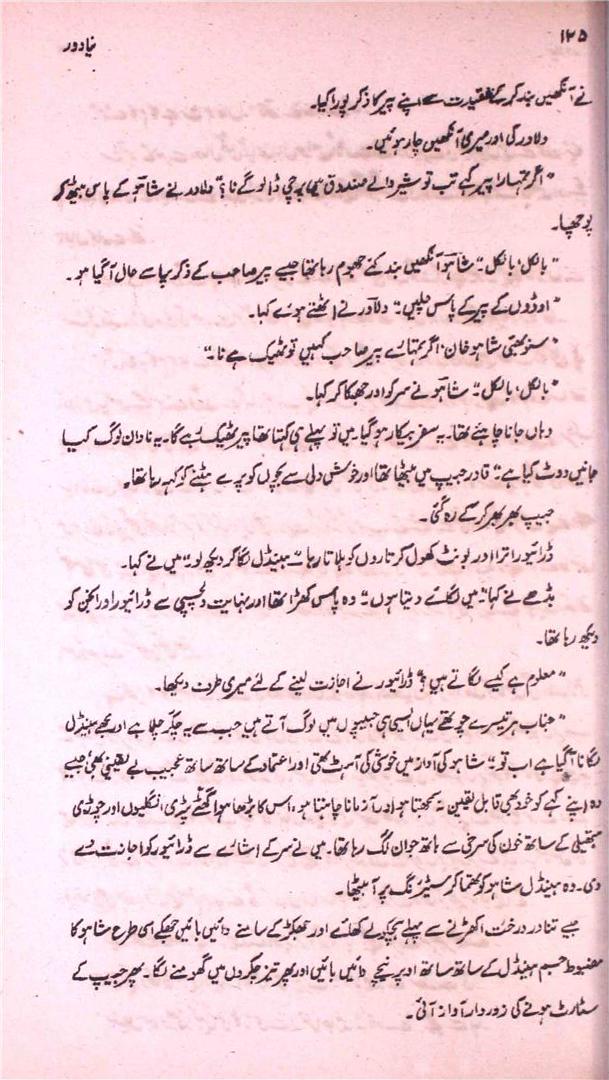 ۱۲۵
نیا دور
نے آنکھیں بند کر کے عقیدت سے اپنے پیر کا ذکر پورا کیا۔
دلاور کی اور میری آنکھیں چار ہوئیں۔
"اگر تمہارا پیر کہے تب تو شیر والے صندوق میں پرچی ڈالو گے نا؟" دلاور نے شاہو کے پاس بیٹھ کر
پوچھا۔
"بالکل، بالکل۔" شاہو آنکھیں بند کئے جھوم رہا تھا جیسے پیر صاحب کے ذکر پا سے حال آ گیا ہو۔
"اوڈوں کے پیر کے پاس چلیں۔" دلاور نے اٹھتے ہوئے کہا۔
"سنو بھئی شاہو خان، اگر تمہارے پیر صاحب کہیں تو ٹھیک ہے نا۔"
"بالکل، بالکل۔" شاہو نے سر کو اور جھکا کر کہا۔
وہاں جانا چاہئے تھا۔ یہ سفر بیکار ہو گیا۔ میں تو پہلے ہی کہتا تھا پیر ٹھیک رہے گا۔ یہ نادان لوگ کیا
جانیں ووٹ کیا ہے" قادر جیپ میں بیٹھا تھا اور خوش دلی سے بچوں کو پرے ہٹنے کو کہہ رہا تھا۔
جیپ پھر پھر کر کے رہ گئی۔
ڈرائیور اترا اور بونٹ کھول کر تاروں کو ہلاتا رہا۔ "ہینڈل لگا کر دیکھ لو" میں نے کہا۔
بڈھے نے کہا "میں لگائے دیتا ہوں" وہ پاس کھڑا تھا اور نہایت دلچسپی سے ڈرائیور اور انجن کو
دیکھ رہا تھا۔
"معلوم ہے کیسے لگاتے ہیں؟" ڈرائیور نے اجازت لینے کے لئے میری طرف دیکھا۔
"جناب ہر تیسرے چوتھے یہاں ایسی ہی جیپوں میں لوگ آتے ہیں جب سے یہ چکر چلا ہے اور مجھے ہینڈل
لگانا آ گیا ہے اب تو" شاہو کی آواز میں خوشی کی آہٹ تھی اور اعتماد کے ساتھ ساتھ عجیب بے یقینی تھی، جیسے
وہ اپنے کہے کو خود بھی قابل یقین نہ سمجھتا ہو اور آزمانا چاہتا ہو، اس کا بڑھا ہوا گٹھے پڑی انگلیوں اور چوڑی
ہتھیلی کے ساتھ خون کی سرخی سے ہاتھ جوان لگ رہا تھا۔ میں نے سر کے اشارے سے ڈرائیور کو اجازت دے
دی۔ وہ ہینڈل شاہو کو تھما کر سٹیرنگ پر آ بیٹھا۔
جیسے تناور درخت اکھڑنے سے پہلے ہچکولے کھائے اور جھکڑ کے سامنے دائیں بائیں جھکے اسی طرح شاہو کا
مضبوط جسم ہینڈل کے ساتھ ساتھ اوپر نیچے دائیں بائیں اور پھر تیز چکروں میں گھومنے لگا۔ پھر جیپ کے
سٹارٹ ہونے کی زور دار آواز آئی۔